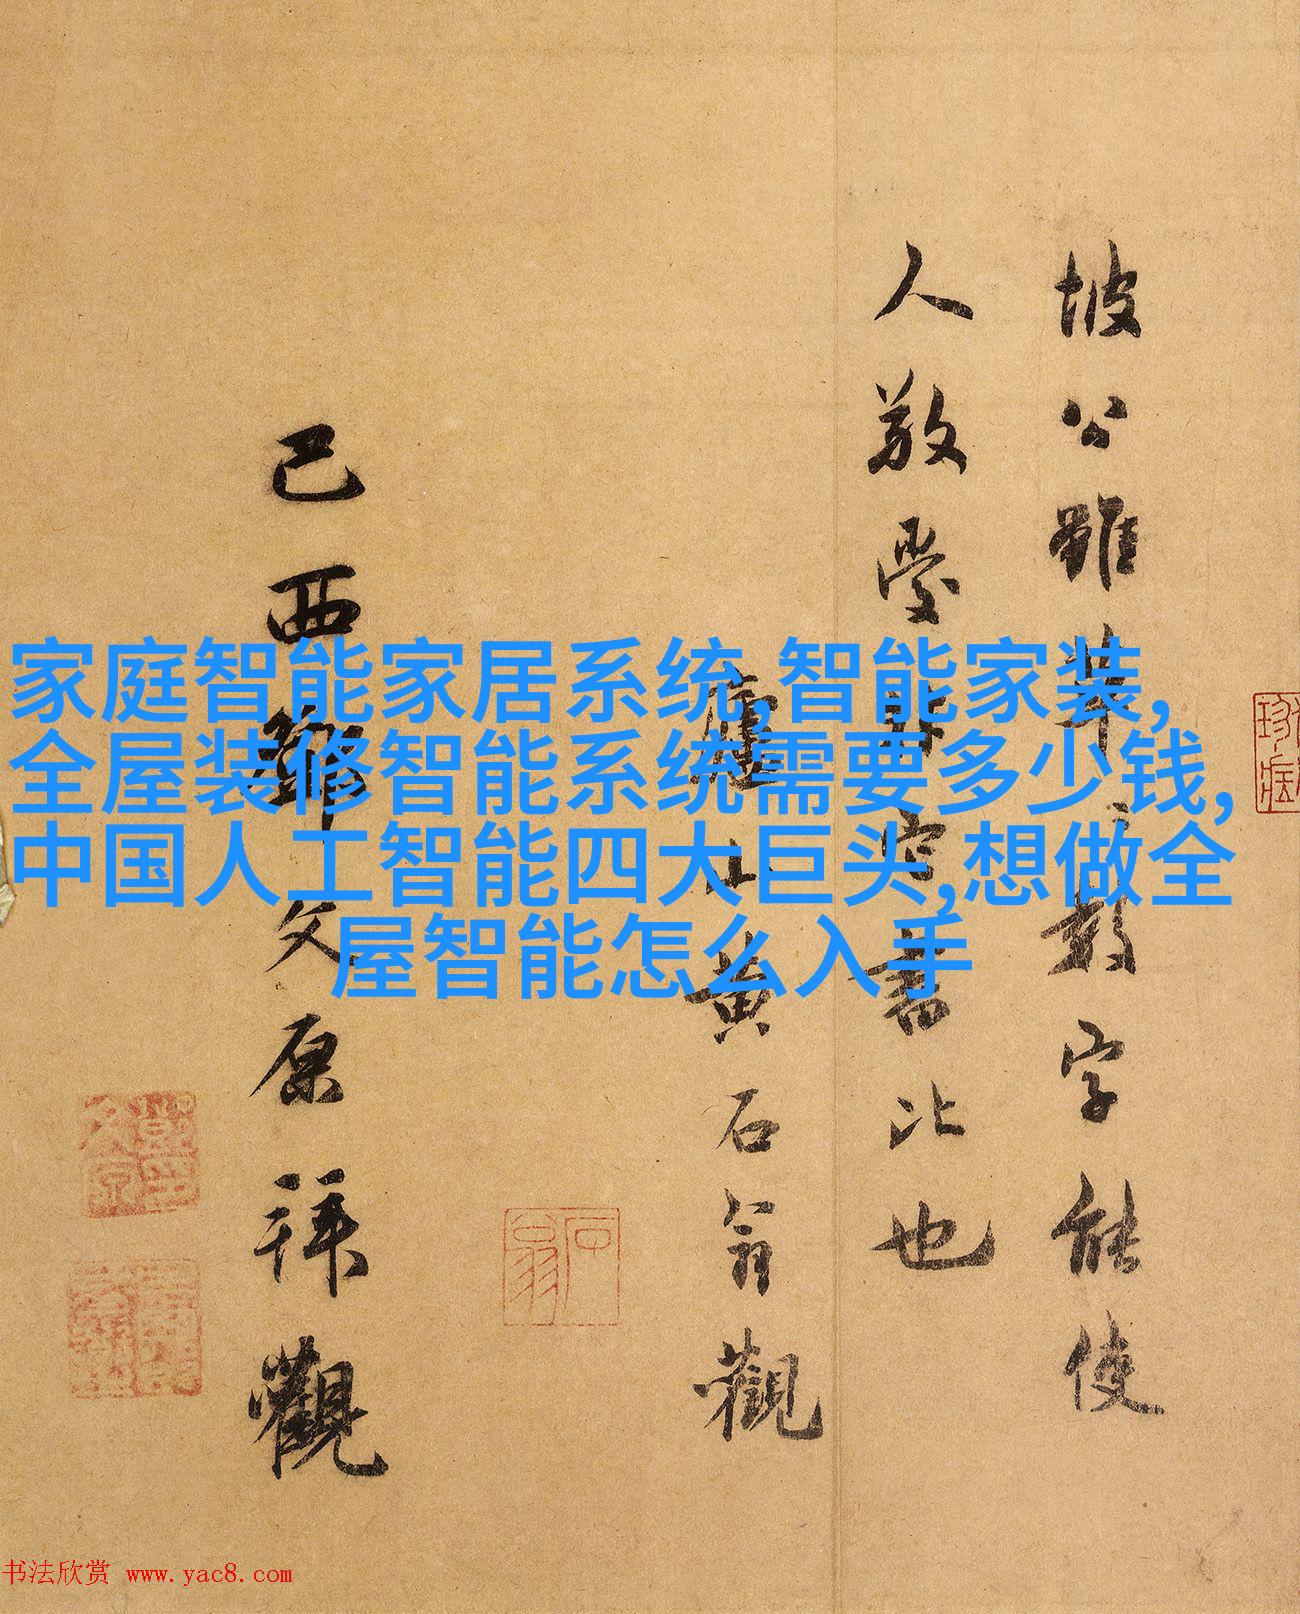 家庭智能家居系统,智能家装,
全屋装修智能系统需要多少钱,
中国人工智能四大巨头,想做全
屋智能怎么入手
坡公雖草草數字能使
人敬愛
書比也
黄石翁觀
己酉鄧文原拜觀
石翁
书法欣赏 www.yac8.com